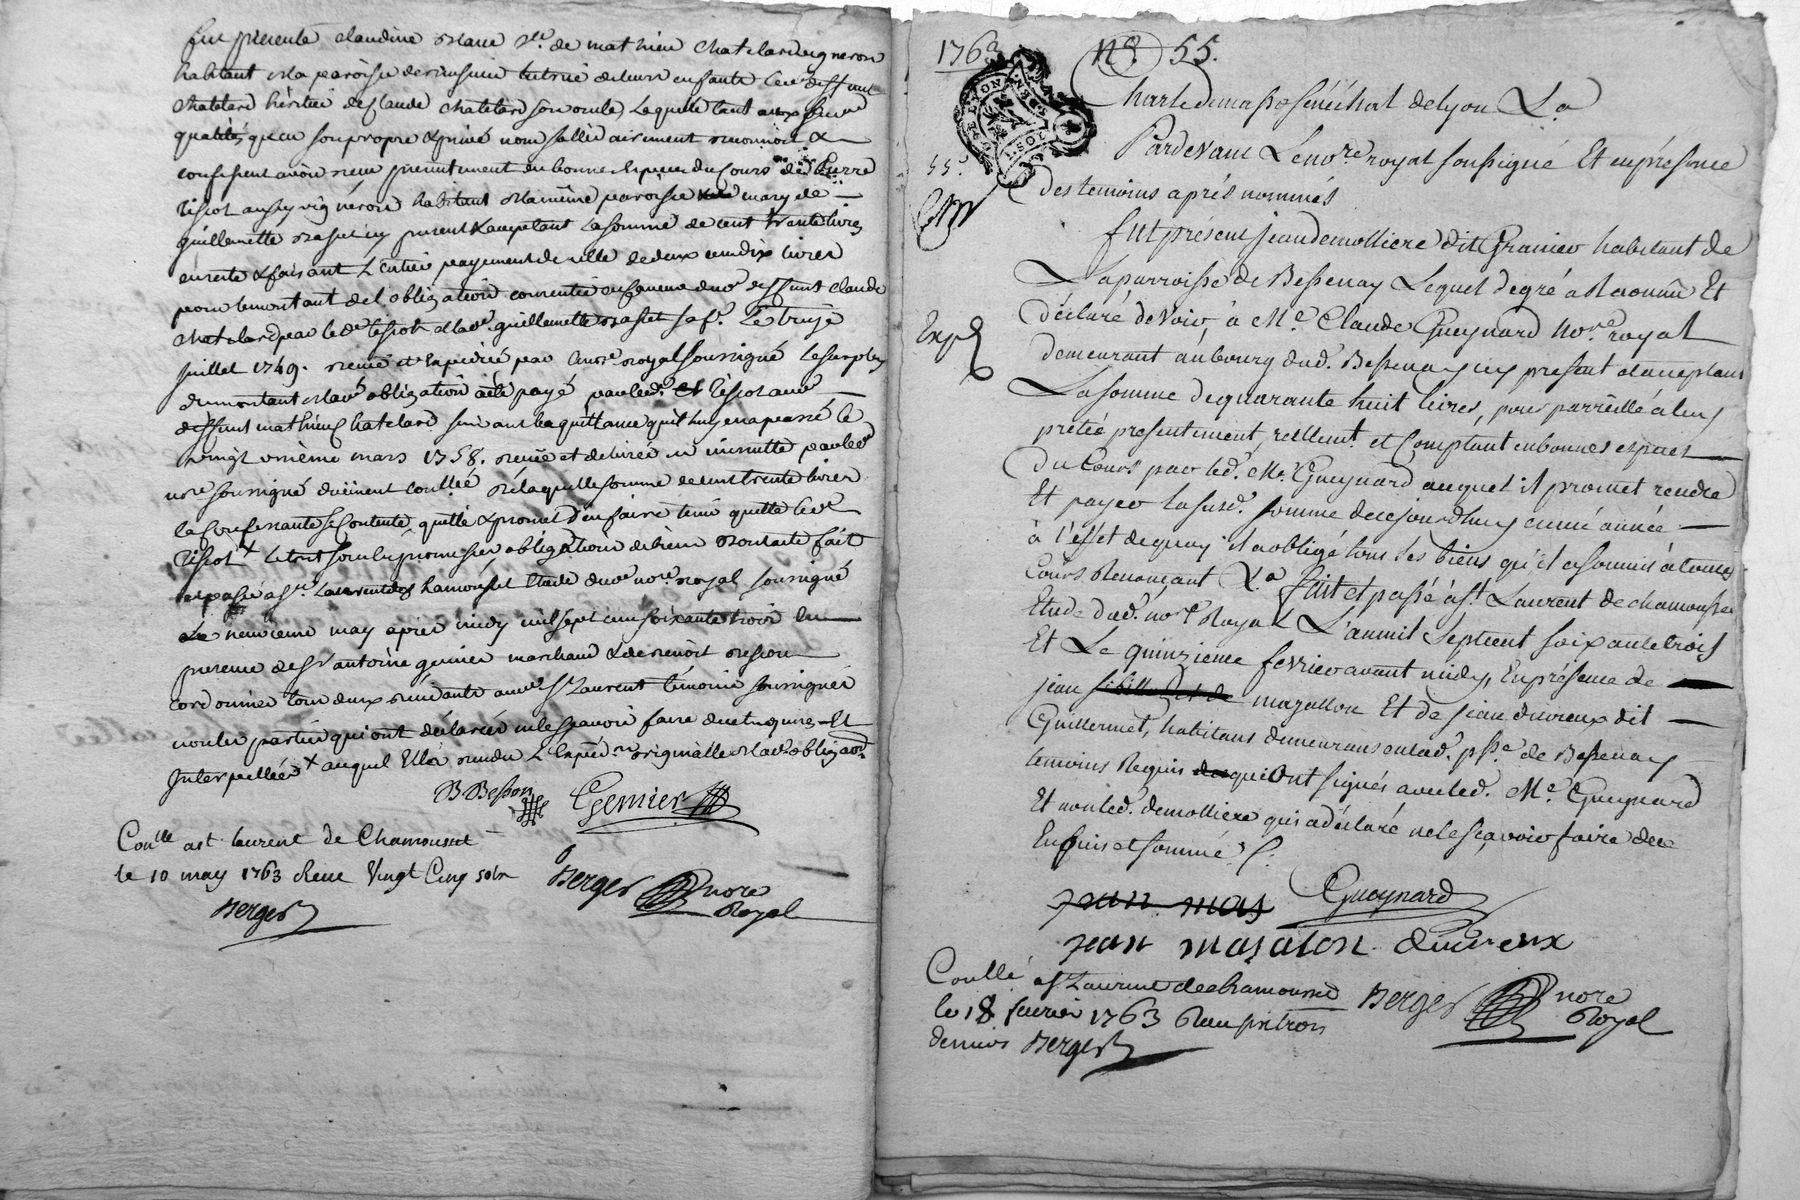 fut presente claudine mare vve de mathieu chatelard vigneron
habitant la paroisse de tutrice de leurs enfants le deffunt
chatelard héritier de Claude chatelard son oncle, Laquelle tant aux
qualités que en son propre & privé nom sollidairement &
confessent avoir receu presentement en bonne espece du cours de Pierre
Tissot aussy vigneron habitant la même paroisse mary de
guillemette present & acceptant La somme de cent trente livres
en reste & faisant L'entier payement de celle de deux cent dix livres
pour le montant de l'obligation consentie en faveur dud. deffunt claude
chatelard par led. tissot & lad. guillemette sa fe. Le treize
juillet 1749. receue et expediée par nore royal soussigné le surplus
du montant de lad. obligation a été payé par led. Tissot aud.
deffunt mathieu chatelard suivant la quittance qu'il luy en a passé le
vingt onzième mars 1758. receue et delivrée en minutte par led.
nore soussigné düement conllée de laquelle somme de cent trente livres
la confessante se contente, quitte & promet d'en faire tenir quitte led.
Tissot x Le tout sous les promesses, obligations de biens fait
et passé à St. Laurent de chamousset Etude dud. nore royal soussigné
Le neuvieme may après midy mil sept cens soixante trois en
presence de Sr antoine genier marchand & de benoit besson
cordonnier tous deux residants aud. St Laurent témoins soussignés
non les parties qui ont déclaré ne le sçavoir faire de ce enquises Et
Interpellées x auquel Elle a rendu L'expédon originalle de lad. obligaon
B Besson Genier
Conlle a St laurent de Chamousset
le 10 may 1763 Receu Vingt Cinq sols
Berger
Berger nore
Royal
1763
No. 55.
DE LYON
1. SOL
Charle de masso sénéchal de Lyon La
Pardevant Le nore royal soussigné Et en présence
55e
des temoins aprés nommés
fut présent jean demolliere dit Granier habitant de
La parroisse de Bessenay Lequel de gré a reconnü Et
déclaré devoir à Me. Claude Gueynard nore royal
Expé
demeurant au bourg dud. Bessenay icy présent et acceptant
La somme de quarante huit livres, pour parreille à luy
prétée presentement, réellement et Comptant en bonnes espéces
du Cours par led. Me. Gueynard auquel il promet rendre
Et payer lasusd. somme de ce jourdhuy en une année
à l'effet de quoy il a obligé tous ses biens qu'il a soumis à toutes
Cours Renonçant La. fait et passé à St. Laurent de chamousset
Etude dud. nore Royal L'an mil Sept cent soixante trois
Et Le quinzieme fevrier avant midy, En présence de
jean mazallon Et de jean duvreux dit
Guillermet, habitans demeurans en lad. psse. de Bessenay
témoins Requis qui Ont signés avec led. Me. Gueynard
Et non led. demolliere qui a déclaré ne le sçavoir faire de ce
Enquis et sommé
jean mas Gueynard
jean masalon duvreux
Conllé a St Laurent de chamousset
le 18 fevrier 1763 Receu
deniers Berger
Berger nore
Royal